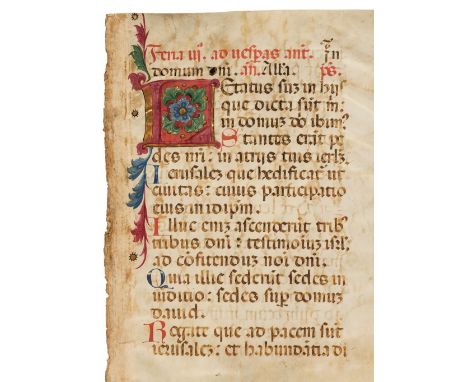 Feria iij. ad vespas ant. In
domum dni. an. Alla. ps.
Letatus suz in hijs
que dicta sut m:
in domuz do ibim?
Stantes erat pe
des nri: in atrijs tuis ierlz.
Ierusalez que hedificat ut
civitas: cuius participatio
eius in idipm.
Illuc eniz ascenderut trib?
tribus dni: testimoniuz isrl.
ad cofitenduz noi dni.
Quia illic sederut sedes in
iuditio: sedes sup domuz
david.
Rogate que ad pacem sut
ierusalez: et habundatia di